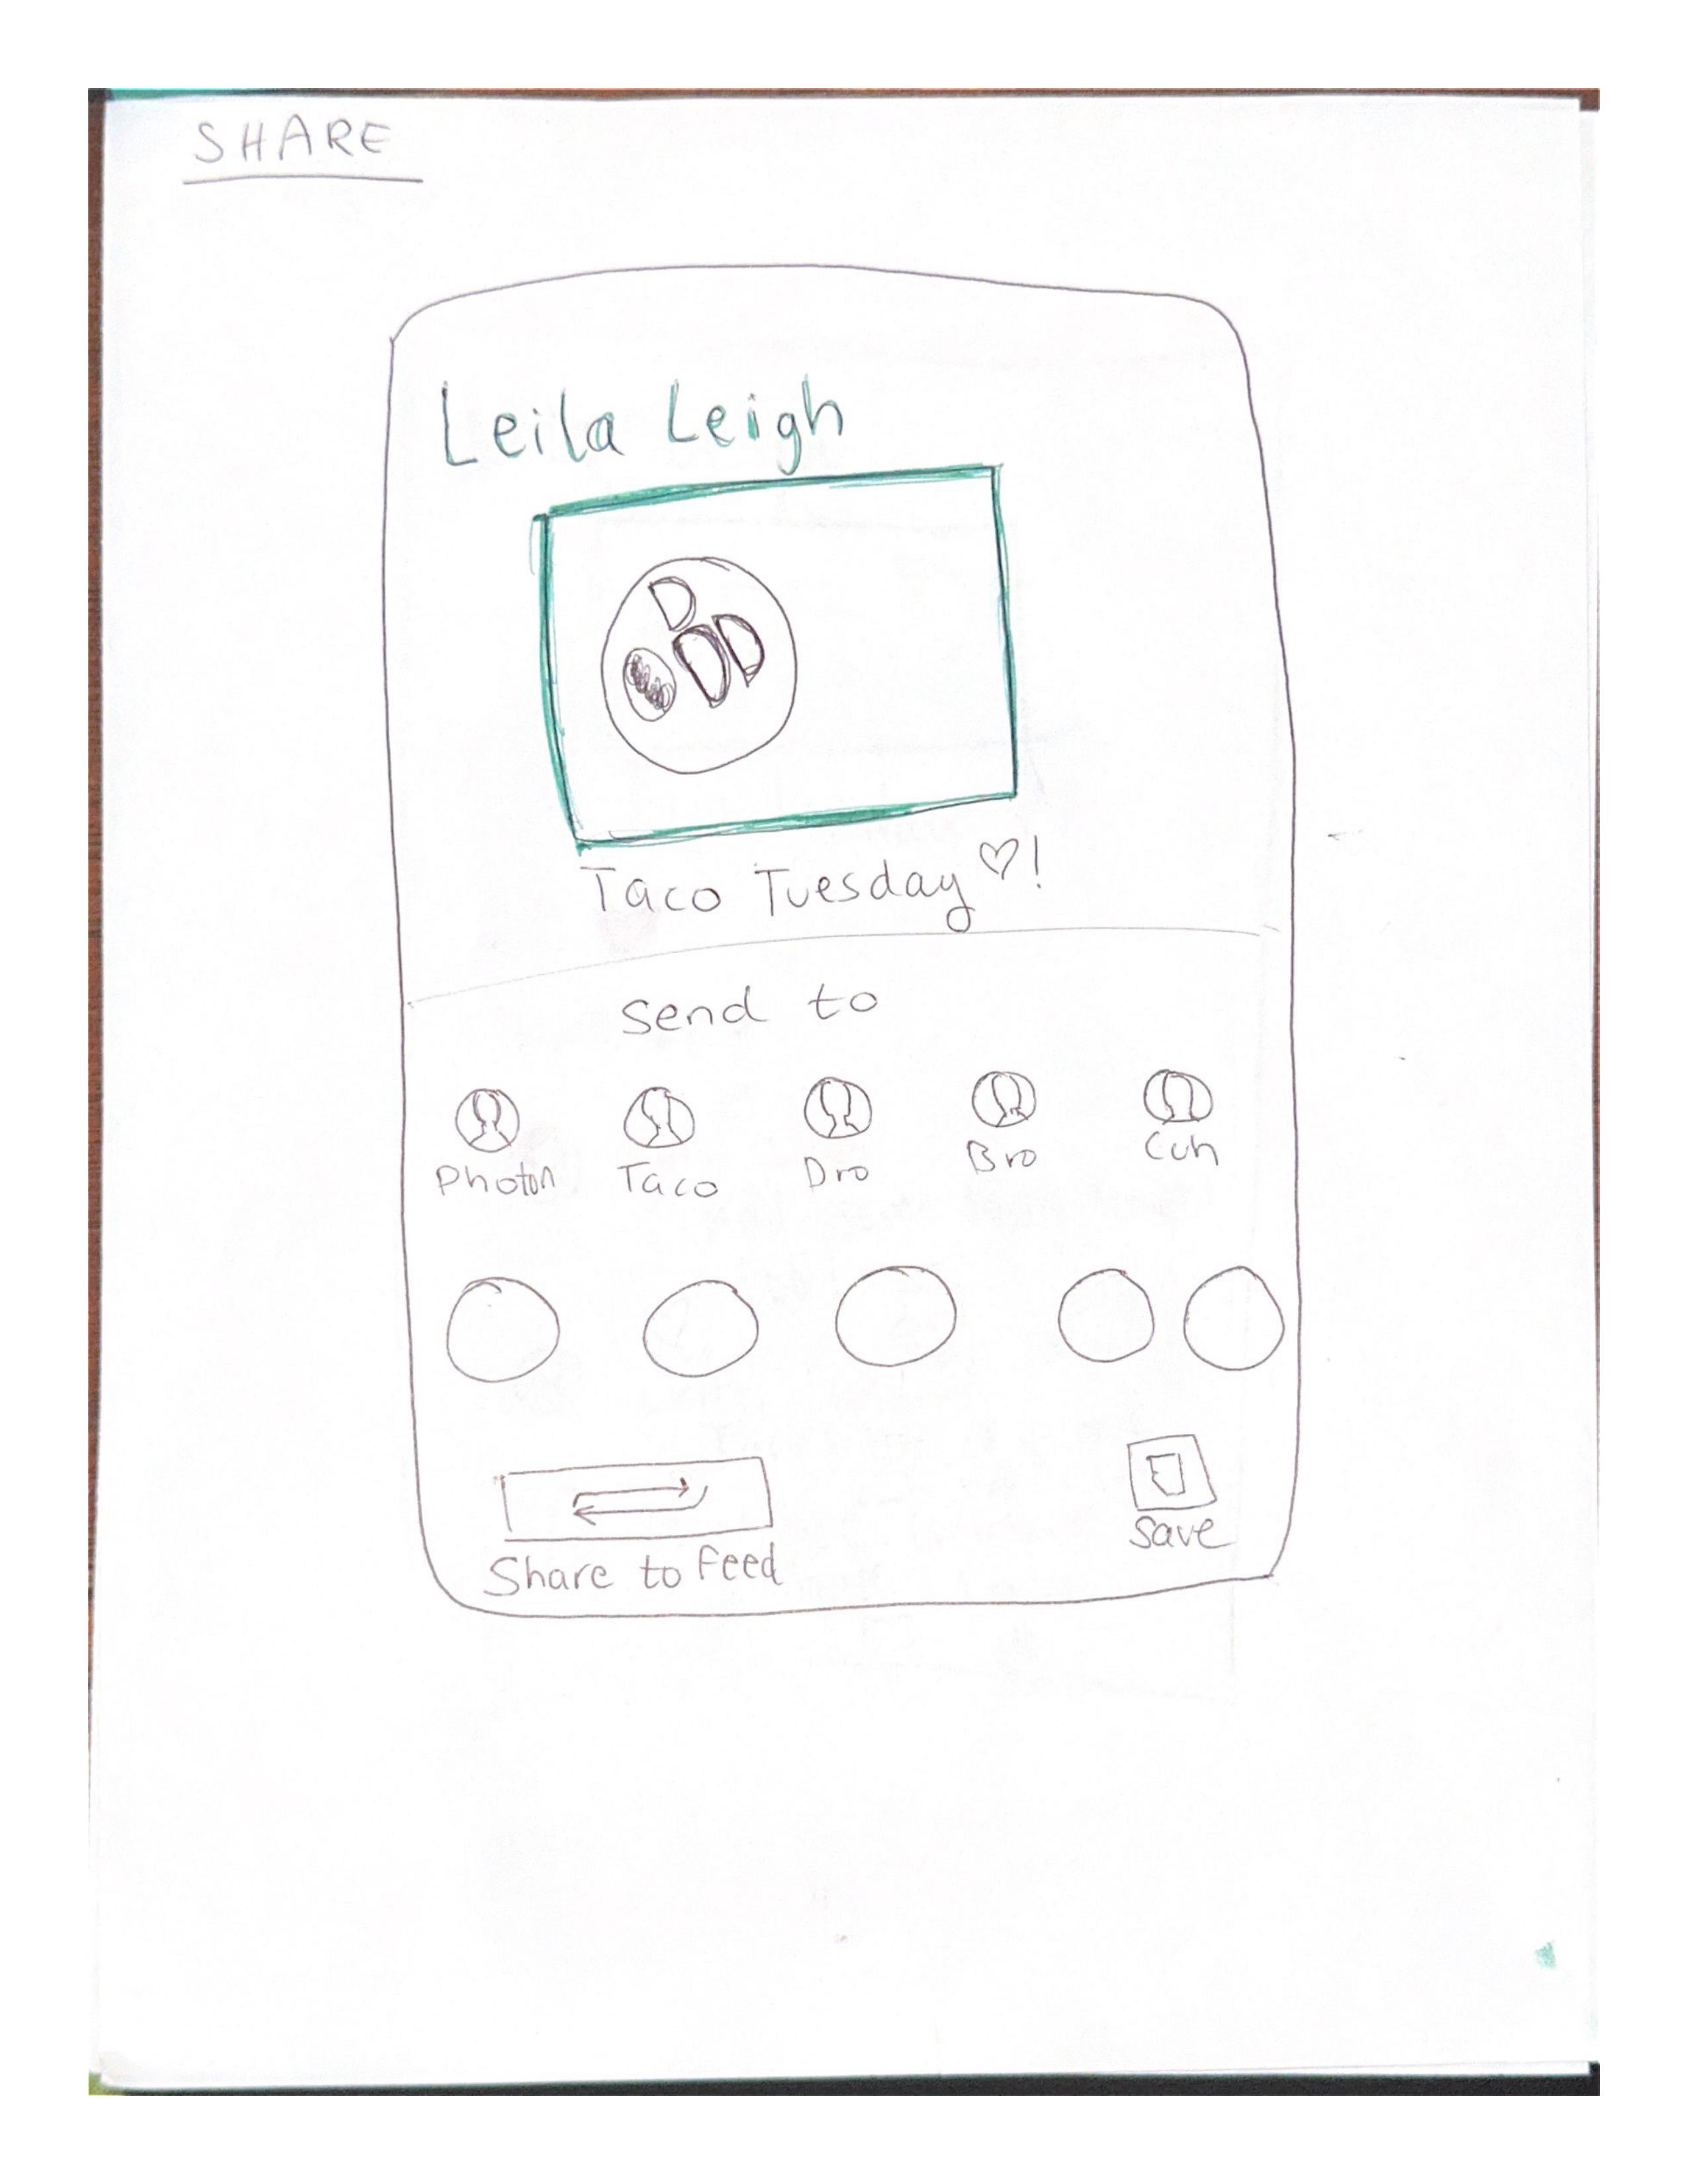 SHARE
Leila Leigh
Taco Tuesday ♡!
Send to
Photon Taco Dro Bro Cuh
Share to feed
Save